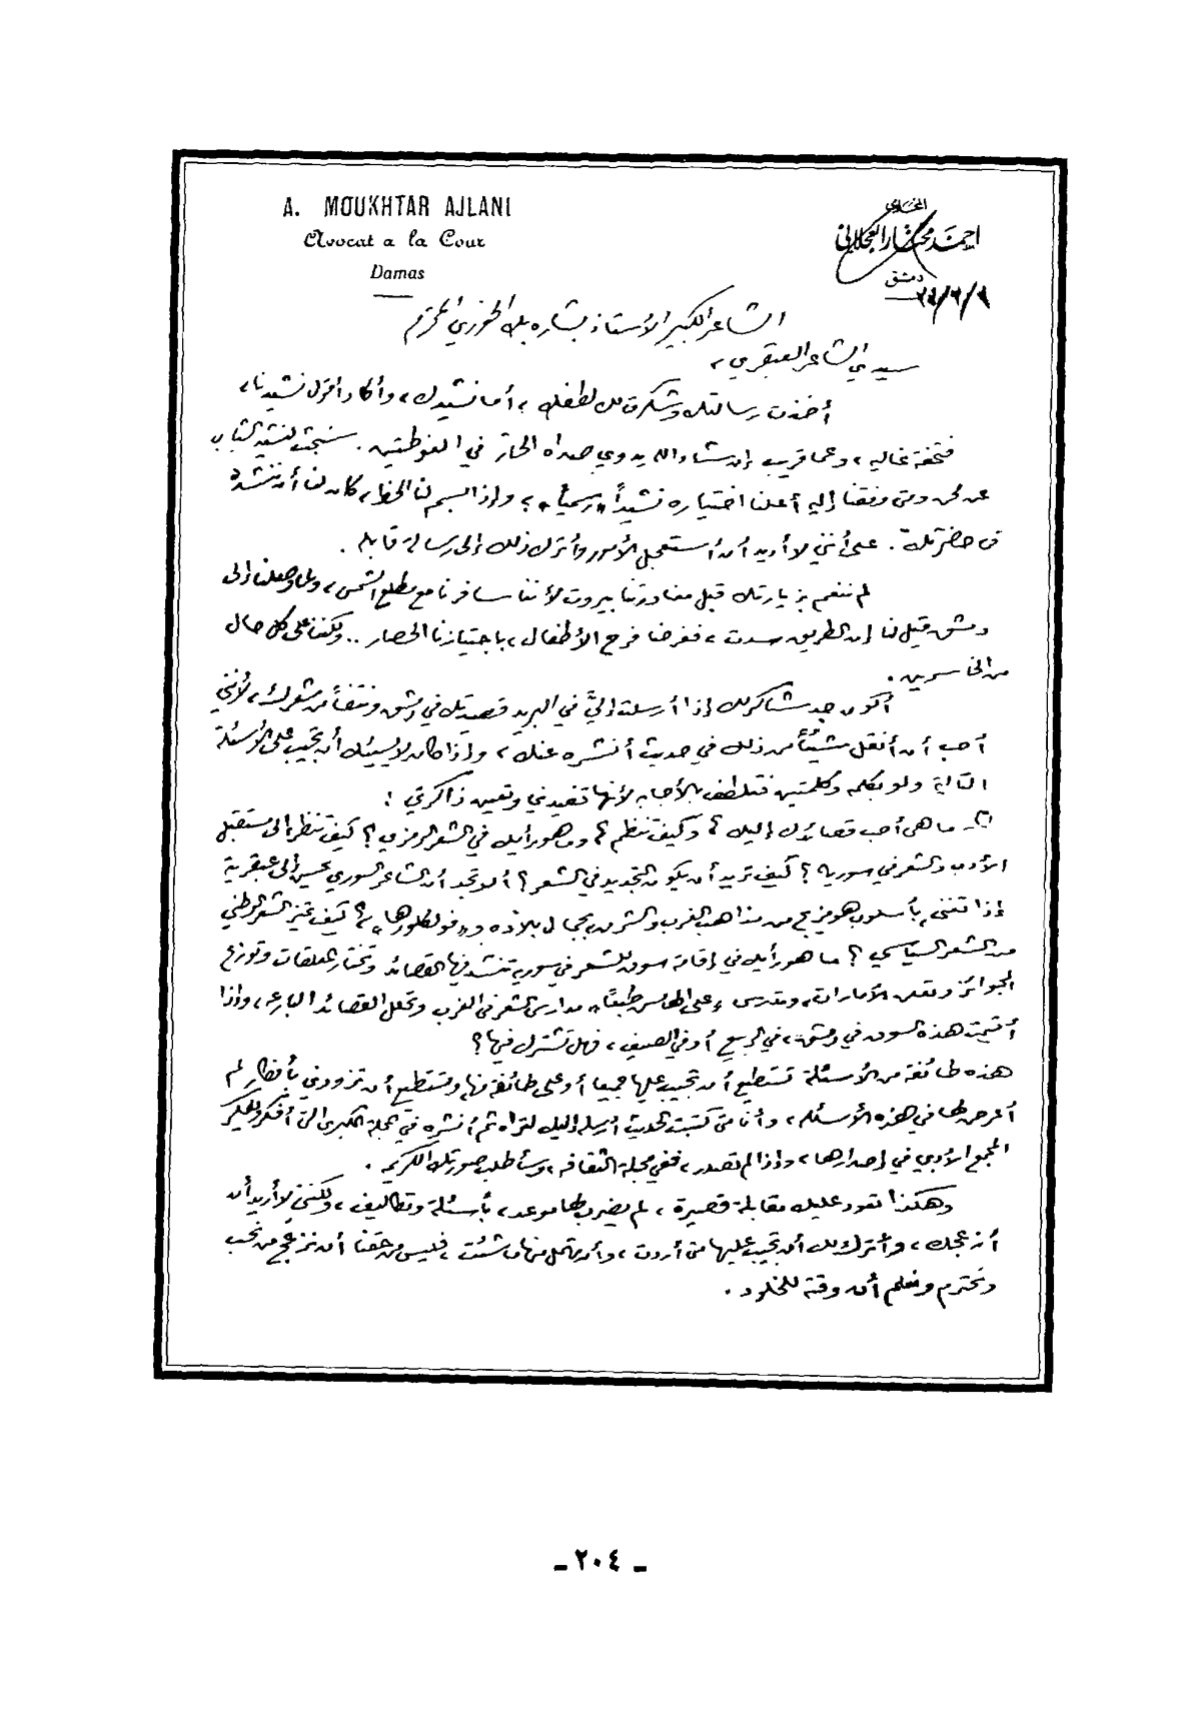 A. MOUKHTAR AJLANI
Avocat a la Cour
Damas
المحامي
احمد مختار العجلاني
دمشق
الشاعر الكبير الأستاذ بشاره بك الخوري المحترم
سيدي الشاعر العبقري،
أخذت رسالتك وشكرت لك لطفك، أما نشيدك، وأكاد أقول نشيدنا،
فتحفة غالية، وعما قريب إن شاء الله يدوي صداه الحار في الغوطتين. سنبحث لنشيد الشباب
عن لحن ومتى وفقنا إليه أعلنا اختياره نشيداً «رسمياً»؛ وإذا ابتسم لنا الحظ، كان لنا أن ننشده
في حضرتك. على أنني لا أريد أن أستعجل الأمور وأترك ذلك إلى رسالة قابلة.
لم ننعم بزيارتك قبل مغادرتنا بيروت لأننا سافرنا مع مطلع الشمس، ولما وصلنا إلى
دمشق قيل لنا إن الطريق سدت، ففرحنا فرح الأطفال، باجتيازنا الحصار.. ولكننا على كل حال
من الخاسرين.
أكون جد شاكر لك إذا أرسلت إليّ في البريد قصيدتك في دمشق ونتفاً من شعرك، لأنني
أحب أن أنقل شيئاً من ذلك في حديث أنشره عنك، وإذا كان لا يسيئك أن تجيب على الأسئلة
التالية ولو بكلمة وكلمتين فتلطف بالأجابه لأنها تفيدني وتعين ذاكرتي:
ما هي أحب قصائدك إليك؟ وكيف تنظم؟ وما هو رأيك في الشعر الرمزي؟ كيف تنظر الى مستقبل
الأدب والشعر في سورية؟ كيف تريد أن يكون التجديد في الشعر؟ ألا تجد أن الشاعر السوري يحسن إلى عبقرية
إذا تغنى بأسلوب هو مزيج من مذاهب الغرب والشرق بجمال بلاده و«فولكلورها»؟ كيف تميز الشعر الوطني
من الشعر السياسي؟ ما هو رأيك في إقامة سوق للشعر في سورية تنشد فيها القصائد وتختار المعلقات وتوزع
الجوائز وتدرس «على الهامش طبعاً» مدارس الشعر في الغرب وتحلل القصائد البارعة، وإذا
أقيمت هذه السوق في دمشق، في الربيع أو في الصيف، فهل تشترك فيها؟
هذه طائفة من الأسئلة تستطيع أن تجيب عليها جميعا أو على طائفة منها، وتستطيع أن تزودني بأفكار لم
أعرض لها في هذه الأسئلة، وأنا متى كتبت الحديث أرسله إليك لتراه ثم أنشره في المجلة الكبرى التي أفكر ويفكر
المجمع الأدبي في إصدارها، وإذا لم تصدر، ففي مجلة الثقافة، وسأطلب صورتك الكريمة.
وهكذا تعود عليك مقابلة قصيرة، لم يضرب لها موعد، بأسئلة وتكاليف، ولكنني لا أريد أن
أزعجك، وأترك لك أن تجيب عليها متى أردت، وأن تهمل منها ما شئت، فليس من حقنا أن نزعج من نحب
ونحترم ونعلم أن وقته للخلود.
- ٢٠٤ -